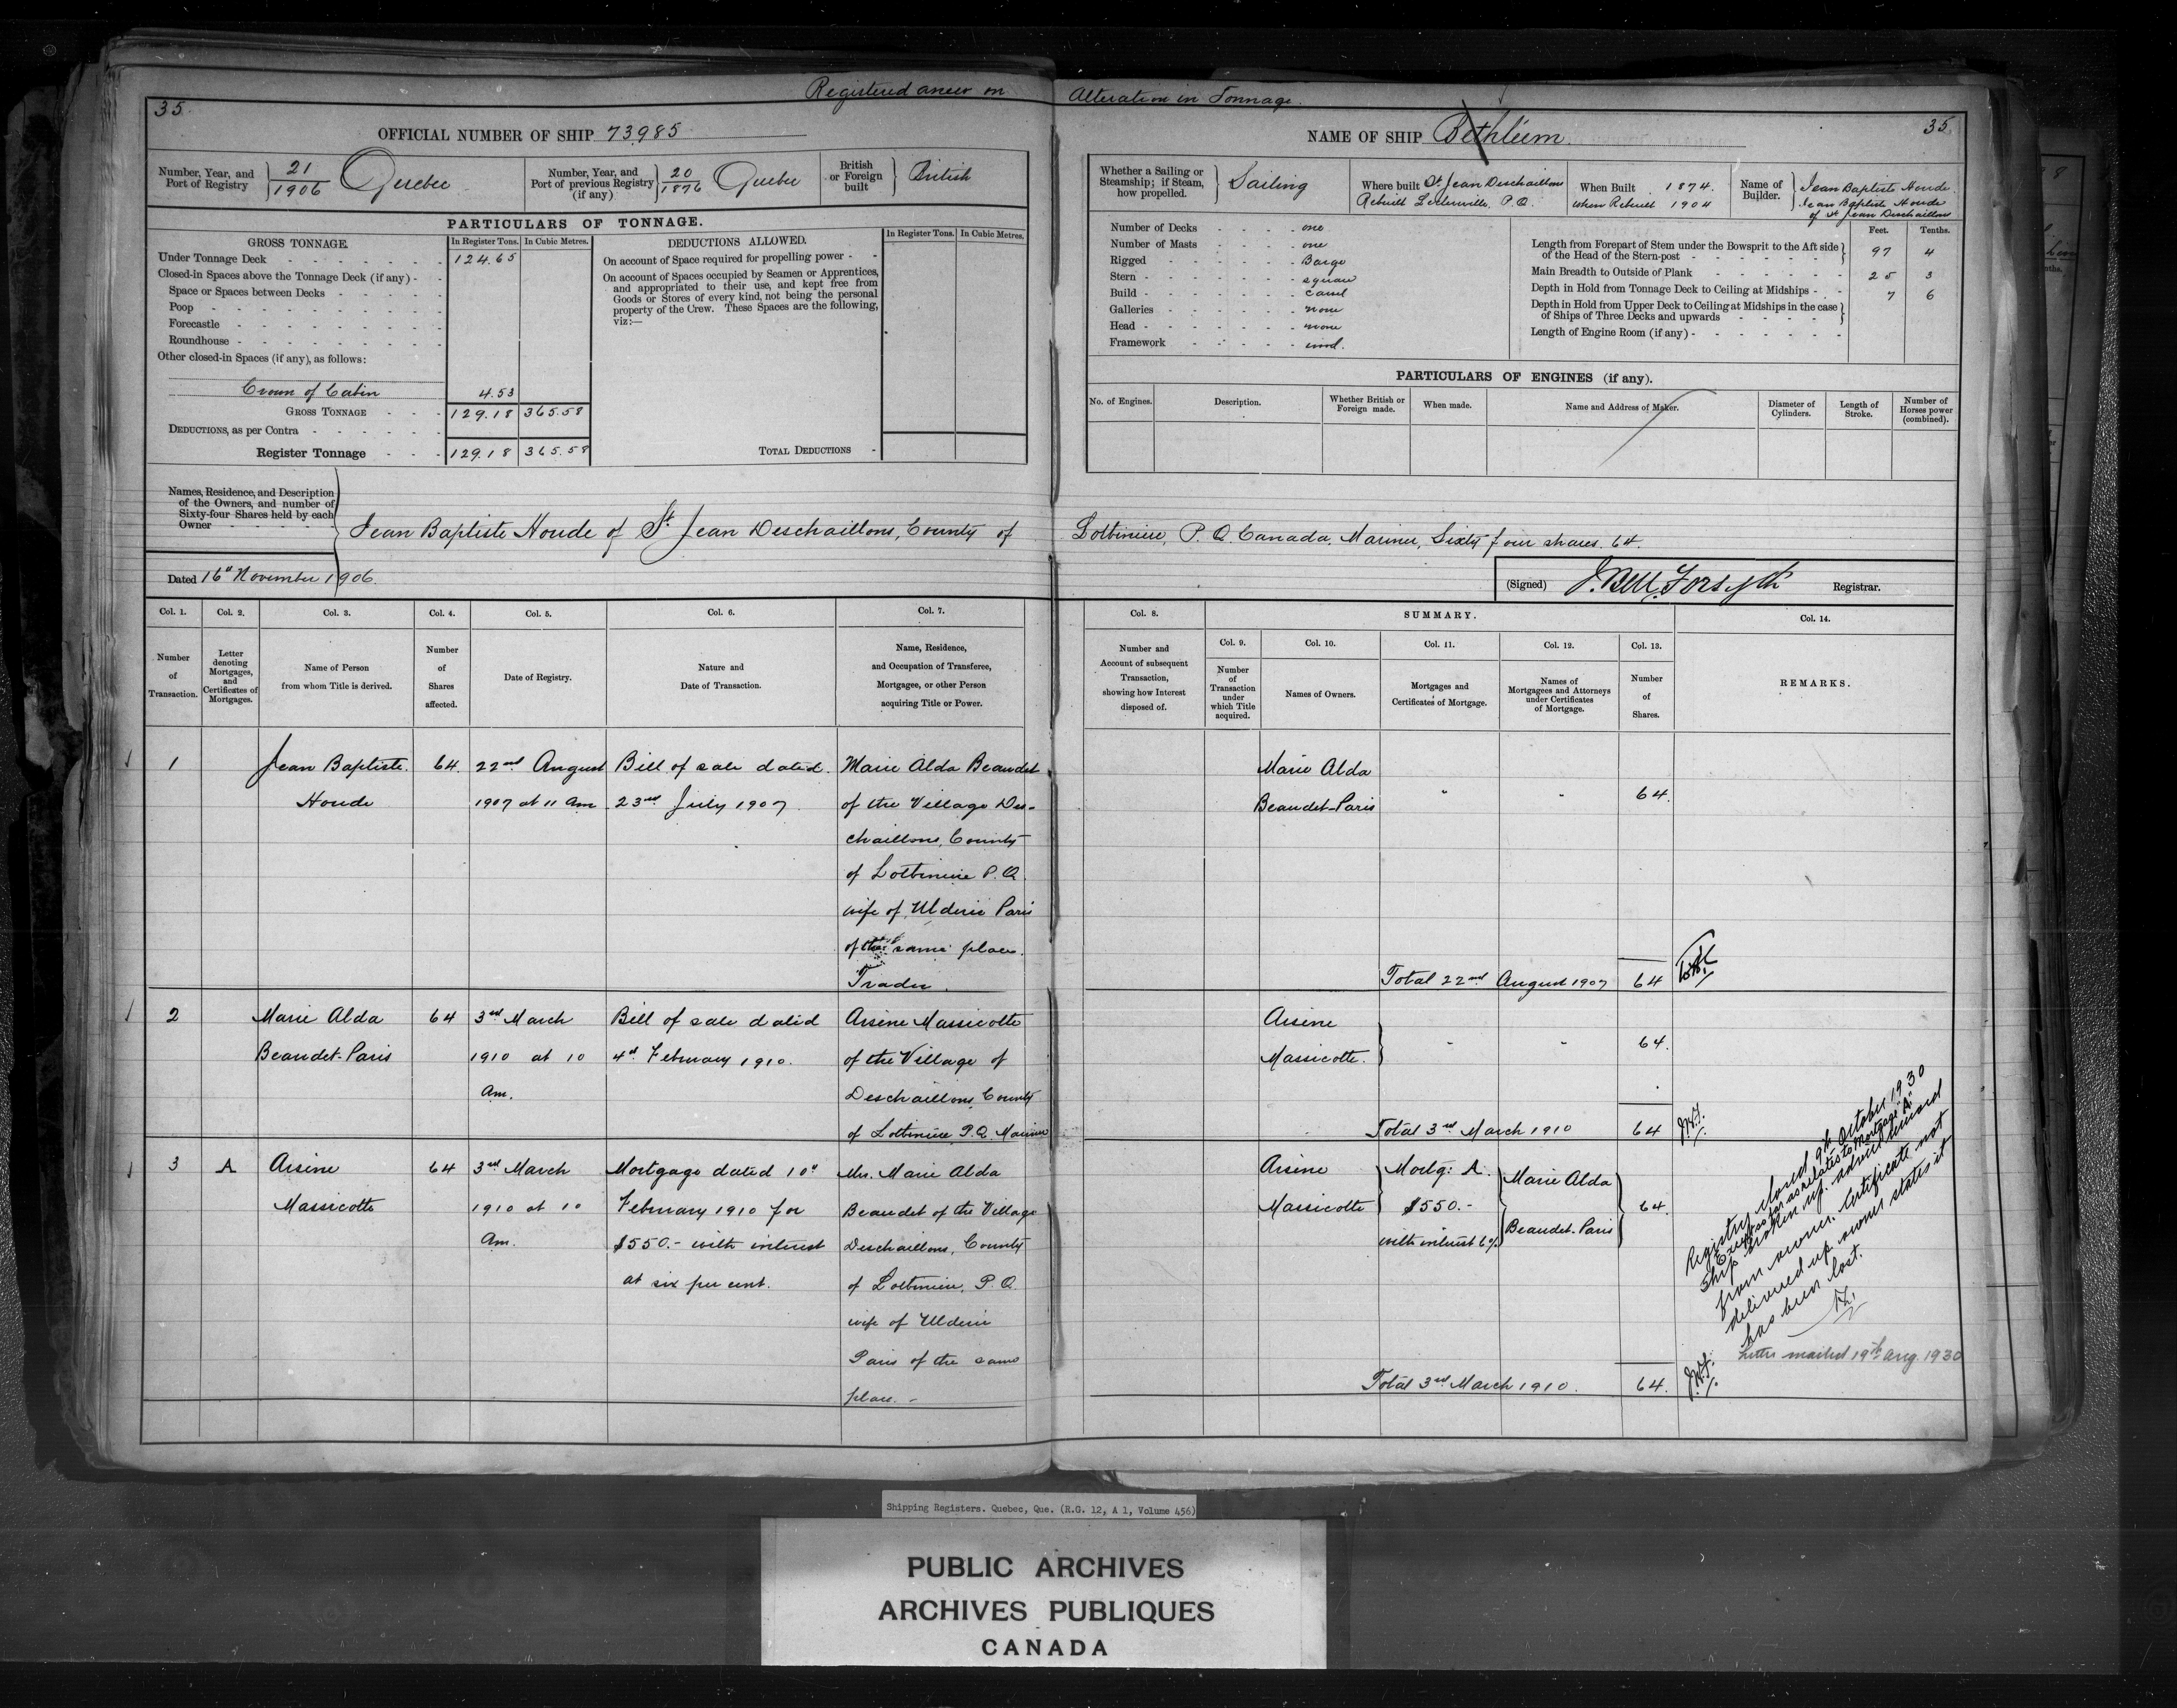 Registered anew on Alteration in Tonnage.
35.
OFFICIAL NUMBER OF SHIP 73985
Number, Year, and Port of Registry } 21/1906 Quebec
Number, Year, and Port of previous Registry (if any) } 20/1876 Quebec
British or Foreign built } British
PARTICULARS OF TONNAGE.
GROSS TONNAGE. In Register Tons. In Cubic Metres.
Under Tonnage Deck 124.65
Closed-in Spaces above the Tonnage Deck (if any)
Space or Spaces between Decks
Poop
Forecastle
Roundhouse
Other closed-in Spaces (if any), as follows:
Crown of Cabin 4.53
GROSS TONNAGE 129.18 365.58
DEDUCTIONS, as per Contra
Register Tonnage 129.18 365.58
DEDUCTIONS ALLOWED. In Register Tons. In Cubic Metres.
On account of Space required for propelling power
On account of Spaces occupied by Seamen or Apprentices,
and appropriated to their use, and kept free from
Goods or Stores of every kind, not being the personal
property of the Crew. These Spaces are the following,
viz:—
TOTAL DEDUCTIONS
NAME OF SHIP Bethléem.
35.
Whether a Sailing or Steamship; if Steam, how propelled. } Sailing
Where built St Jean Deschaillons
Rebuilt Leclercville, P.Q.
When Built 1874.
When Rebuilt 1904
Name of Builder. } Jean Baptiste Houde.
Jean Baptiste Houde
of St Jean Deschaillons
Number of Decks one
Number of Masts one
Rigged Barge
Stern square
Build carvel
Galleries none
Head none
Framework wood.
Feet. Tenths.
Length from Forepart of Stem under the Bowsprit to the Aft side of the Head of the Stern-post 97 4
Main Breadth to Outside of Plank 25 3
Depth in Hold from Tonnage Deck to Ceiling at Midships 7 6
Depth in Hold from Upper Deck to Ceiling at Midships in the case of Ships of Three Decks and upwards
Length of Engine Room (if any)
PARTICULARS OF ENGINES (if any).
No. of Engines. Description. Whether British or Foreign made. When made. Name and Address of Maker. Diameter of Cylinders. Length of Stroke. Number of Horses power (combined).
Names, Residence, and Description of the Owners, and number of Sixty-four Shares held by each Owner
Jean Baptiste Houde of St. Jean Deschaillons, County of Lotbiniere, P.Q. Canada, Mariner, Sixty four shares. 64.
Dated 16th November 1906.
(Signed) J. Bell Forsyth Registrar.
Col. 1. Col. 2. Col. 3. Col. 4. Col. 5. Col. 6. Col. 7. Col. 8. SUMMARY. Col. 14.
Col. 9. Col. 10. Col. 11. Col. 12. Col. 13.
Number of Transaction.
Letter denoting Mortgages, and Certificates of Mortgages.
Name of Person from whom Title is derived.
Number of Shares affected.
Date of Registry.
Nature and Date of Transaction.
Name, Residence, and Occupation of Transferee, Mortgagee, or other Person acquiring Title or Power.
Number and Account of subsequent Transaction, showing how Interest disposed of.
Number of Transaction under which Title acquired.
Names of Owners.
Mortgages and Certificates of Mortgage.
Names of Mortgagees and Attorneys under Certificates of Mortgage.
Number of Shares.
REMARKS.
1 Jean Baptiste 64. 22nd August Bill of sale dated Marie Alda Beaudet
Houde 1907 at 11 am 23rd July 1907 of the Village Des-
chaillons, County
of Lotbiniere P.Q.
wife of Ulderic Paris
of the same place.
Trader.
Marie Alda
Beaudet-Paris " " 64.
Total 22nd August 1907 64
2 Marie Alda 64 3rd March Bill of sale dated Arsène Massicotte
Beaudet-Paris 1910 at 10 4th February 1910. of the Village of
Am. Deschaillons, County
of Lotbiniere P.Q. Mariner
Arsène
Massicotte. " " 64.
Total 3rd March 1910 64
3 A Arsène 64 3rd March Mortgage dated 10th Mrs. Marie Alda
Massicotte 1910 at 10 February 1910 for Beaudet of the Village
Am. $550.- with interest Deschaillons, County
at six per cent. of Lotbiniere, P.Q.
wife of Ulderic
Paris of the same
place.-
Arsène Mortg: A. Marie Alda
Massicotte $550.- 64.
with interest 6% Beaudet-Paris
Total 3rd March 1910. 64.
Registry closed 9th October 1930
Except as far as relates to Mortgage "A".
Ship broken up. advice received
from owner. Certificate not
delivered up owner states it
has been lost.
Letter mailed 19th Aug. 1930
Shipping Registers. Quebec, Que. (R.G. 12, A 1, Volume 456)
PUBLIC ARCHIVES
ARCHIVES PUBLIQUES
CANADA